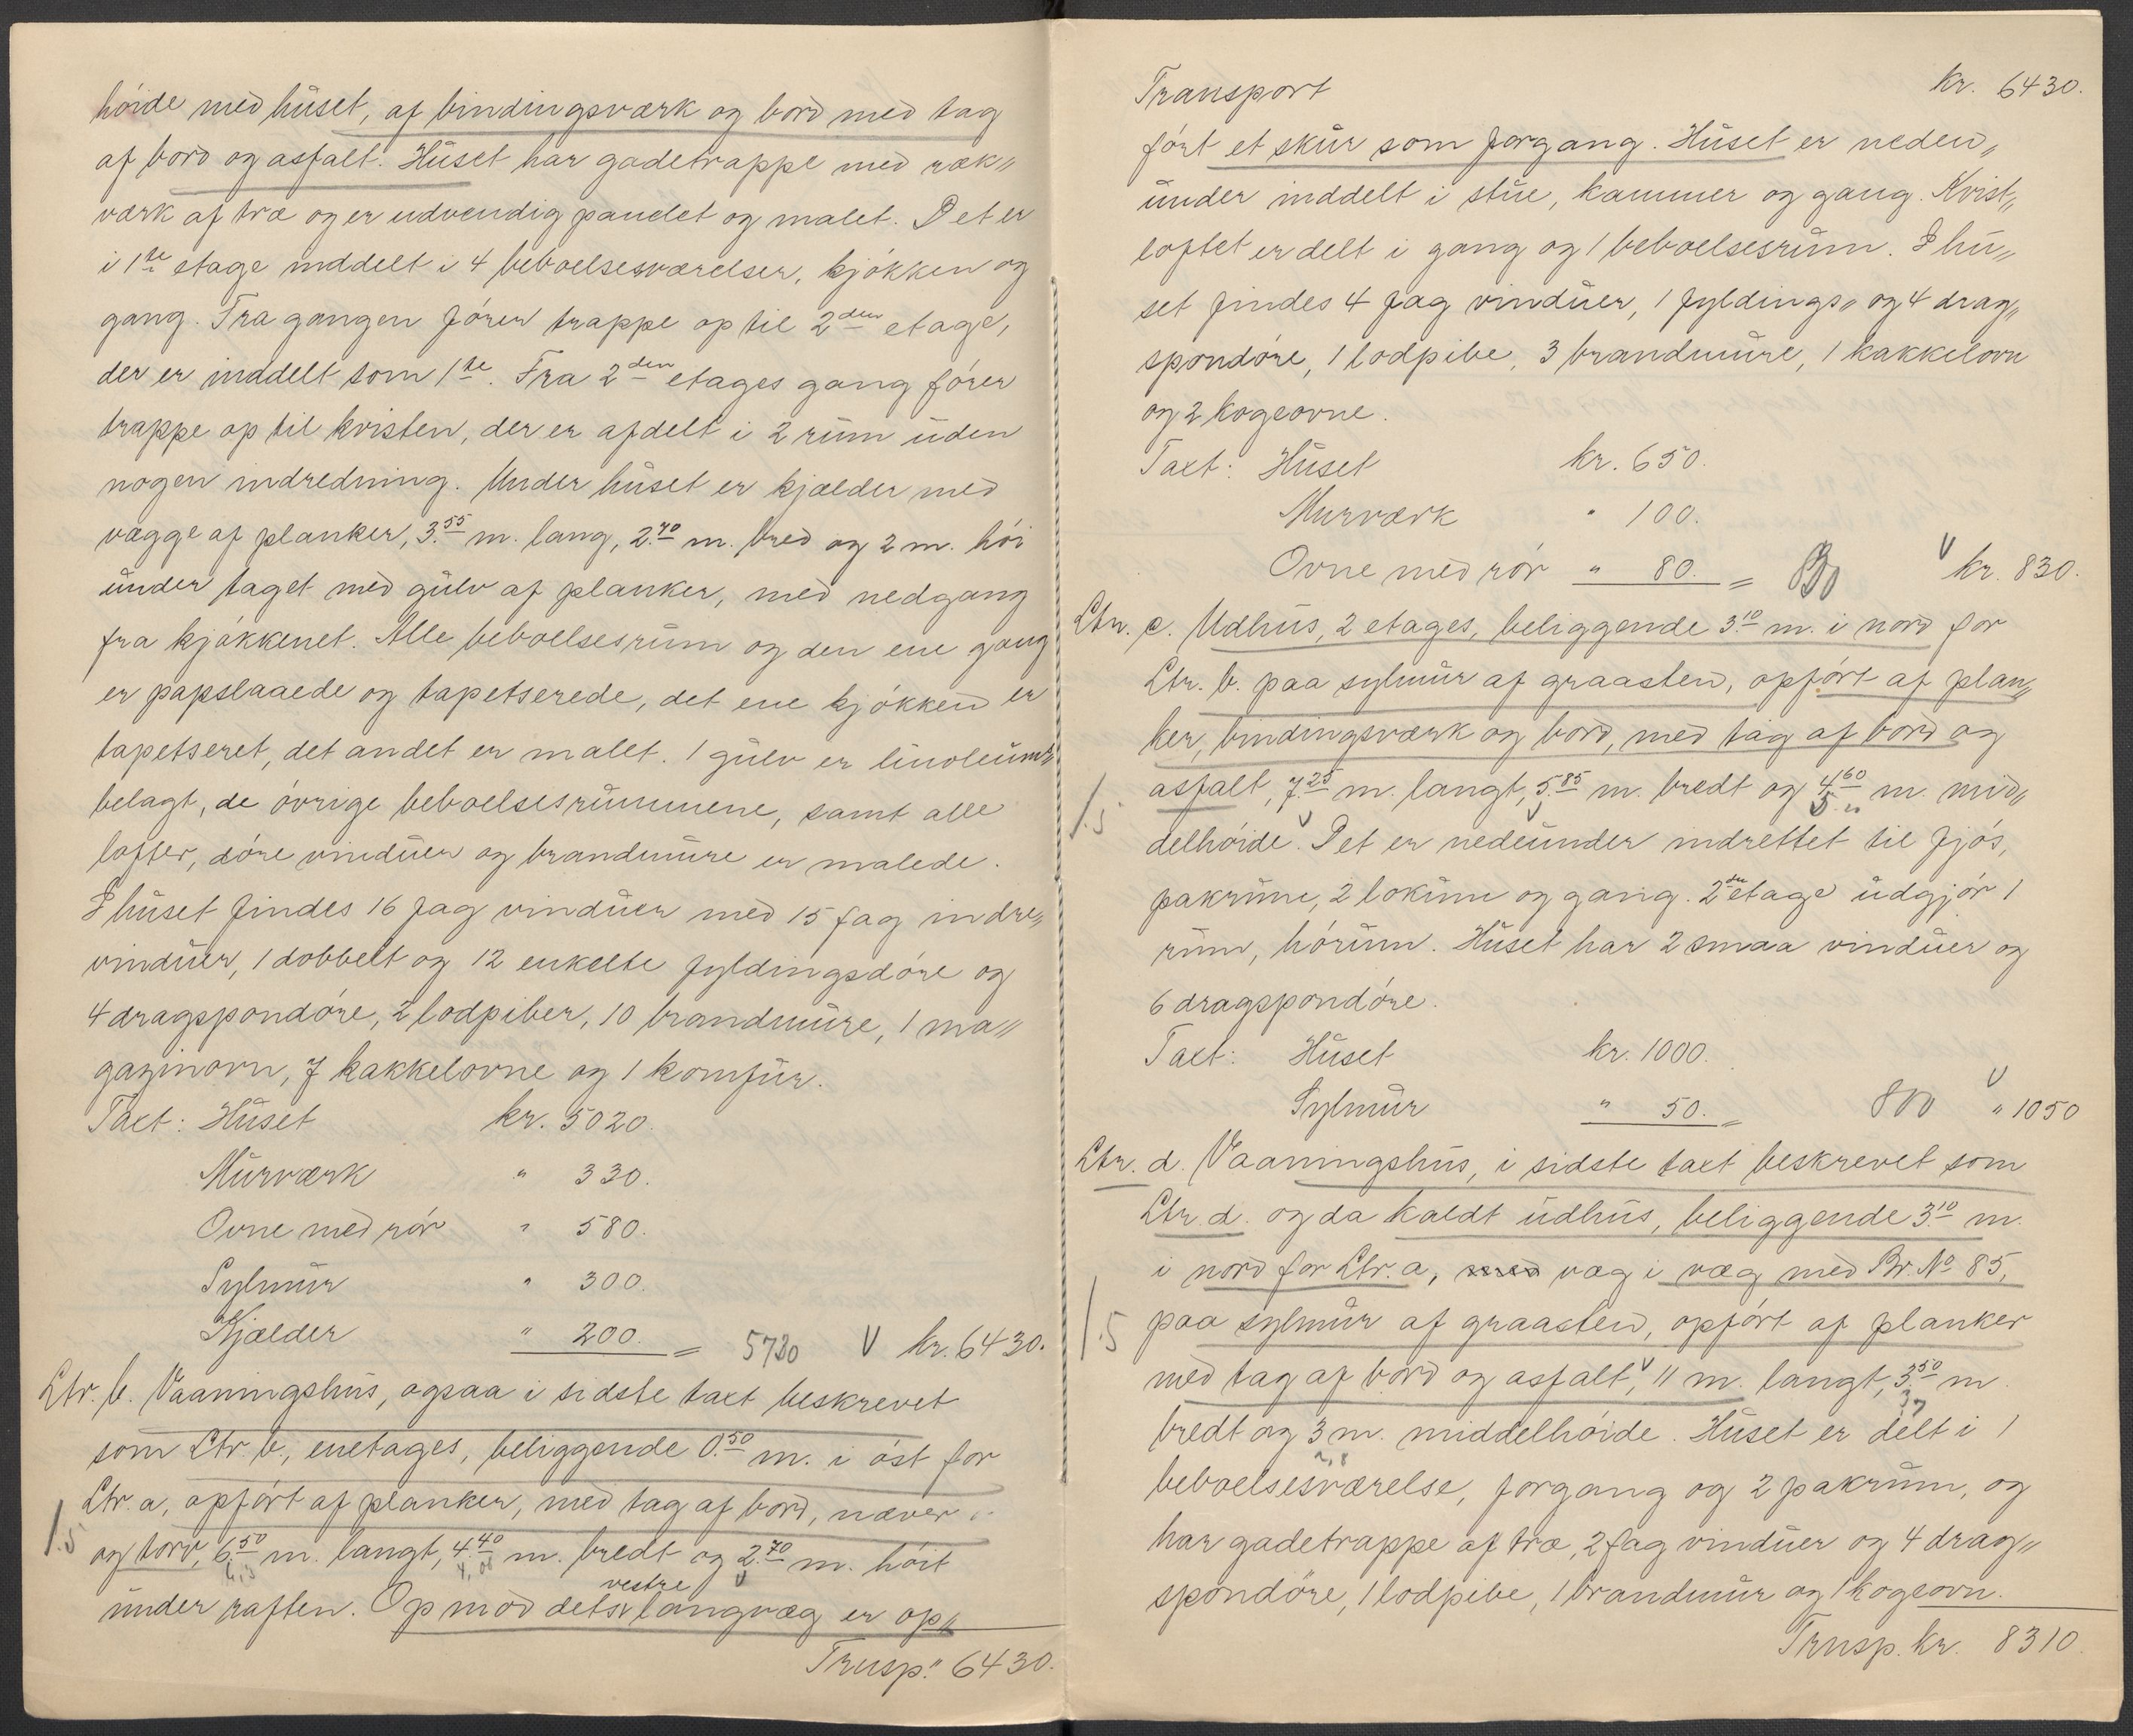 höide med huset, af bindingsværk og bord med tag
af bord og asfalt. Huset har gadetrappe med ræk„
værk af træ og er udvendig panelet og malet. Det er
i 1ste etage inddelt i 4 beboelsesværelser, kjökken og
gang. Fra gangen förer trappe op til 2den etage,
der er inddelt som 1ste. Fra 2den etages gang förer
trappe op til kvisten, der er afdelt i 2 rum uden
nogen indredning. Under huset er kjælder med
vægge af planker, 3.55 m. lang, 2.70 m. bred og 2 m. höi
under taget med gulv af planker, med nedgang
fra kjøkkenet. Alle beboelsesrum og den ene gang
er papslaaede og tapetserede, det ene kjökken er
tapetseret, det andet er malet. 1 gulv er linoleums
belagt, de övrige beboelsesrummene, samt alle
lofter, döre vinduer og brandmure er malede.
I huset findes 16 fag vinduer med 15 fag indre„
vinduer, 1 dobbelt og 12 enkelte fyldingsdöre og
4 dragspondöre, 2 lodpiber, 10 brandmure, 1 ma„
gazinovn, 7 kakkelovne og 1 komfur.
Taxt: Huset kr. 5020.
Murværk " 330.
Ovne med rör " 580.
Sylmur " 300.
Kjælder " 200. = V kr. 6430.
Ltr. b. Vaaningshus, ogsaa i sidste taxt beskrevet
som Ltr. b., enetages, beliggende 0.50 m. i öst for
Ltr. a, opfört af planker, med tag af bord, næver
1.5 og torv, 6.50 m. langt, 4.40 m. bredt og 2.70 m. höit
vestre
under raften. Op mod dets langvæg er op„
Trnsp. " 6430.
Transport kr. 6430.
fört et skur som forgang. Huset er neden„
under inddelt i stue, kammer og gang. Kvist„
loftet er delt i gang og 1 beboelsesrum. I hu„
set findes 4 fag vinduer, 1 fyldings„ og 4 drag„
spondöre, 1 lodpibe, 3 brandmure, 1 kakkelovn
og 2 kogeovne.
Taxt: Huset kr. 650.
Murværk " 100.
Ovne med rör " 80. = V kr. 830.
Ltr. c. Udhus, 2 etages, beliggende 3.10 m. i nord for
Ltr. b. paa sylmur af graasten, opfört af plan„
ker, bindingsværk og bord, med tag af bord og
1.5 asfalt, 7.25 m. langt, 5.85 m. bredt og 4.60 m. mid„
delhöide. Det er nedeunder indrettet til fjös,
pakrum, 2 lokum og gang. 2den etage udgjör 1
rum, hörum. Huset har 2 smaa vinduer og
6 dragspondöre.
Taxt: Huset kr. 1000.
Sylmur " 50. = 800 V " 1050
Ltr. d. Vaaningshus, i sidste taxt beskrevet som
Ltr. d. og da kaldt udhus, beliggende 3.10 m.
i nord for Ltr. a, med væg i væg med Br. No 85,
1.5 paa sylmur af graasten, opfört af planker
med tag af bord og asfalt, 11 m. langt, 3.50 m.
bredt og 3 m. middelhöide. Huset er delt i 1
2,8
beboelsesværelse, forgang og 2 pakrum, og
har gadetrappe af træ, 2 fag vinduer og 4 drag„
spondöre, 1 lodpibe, 1 brandmur og 1 kogeovn.
Trnsp. kr. 8310.